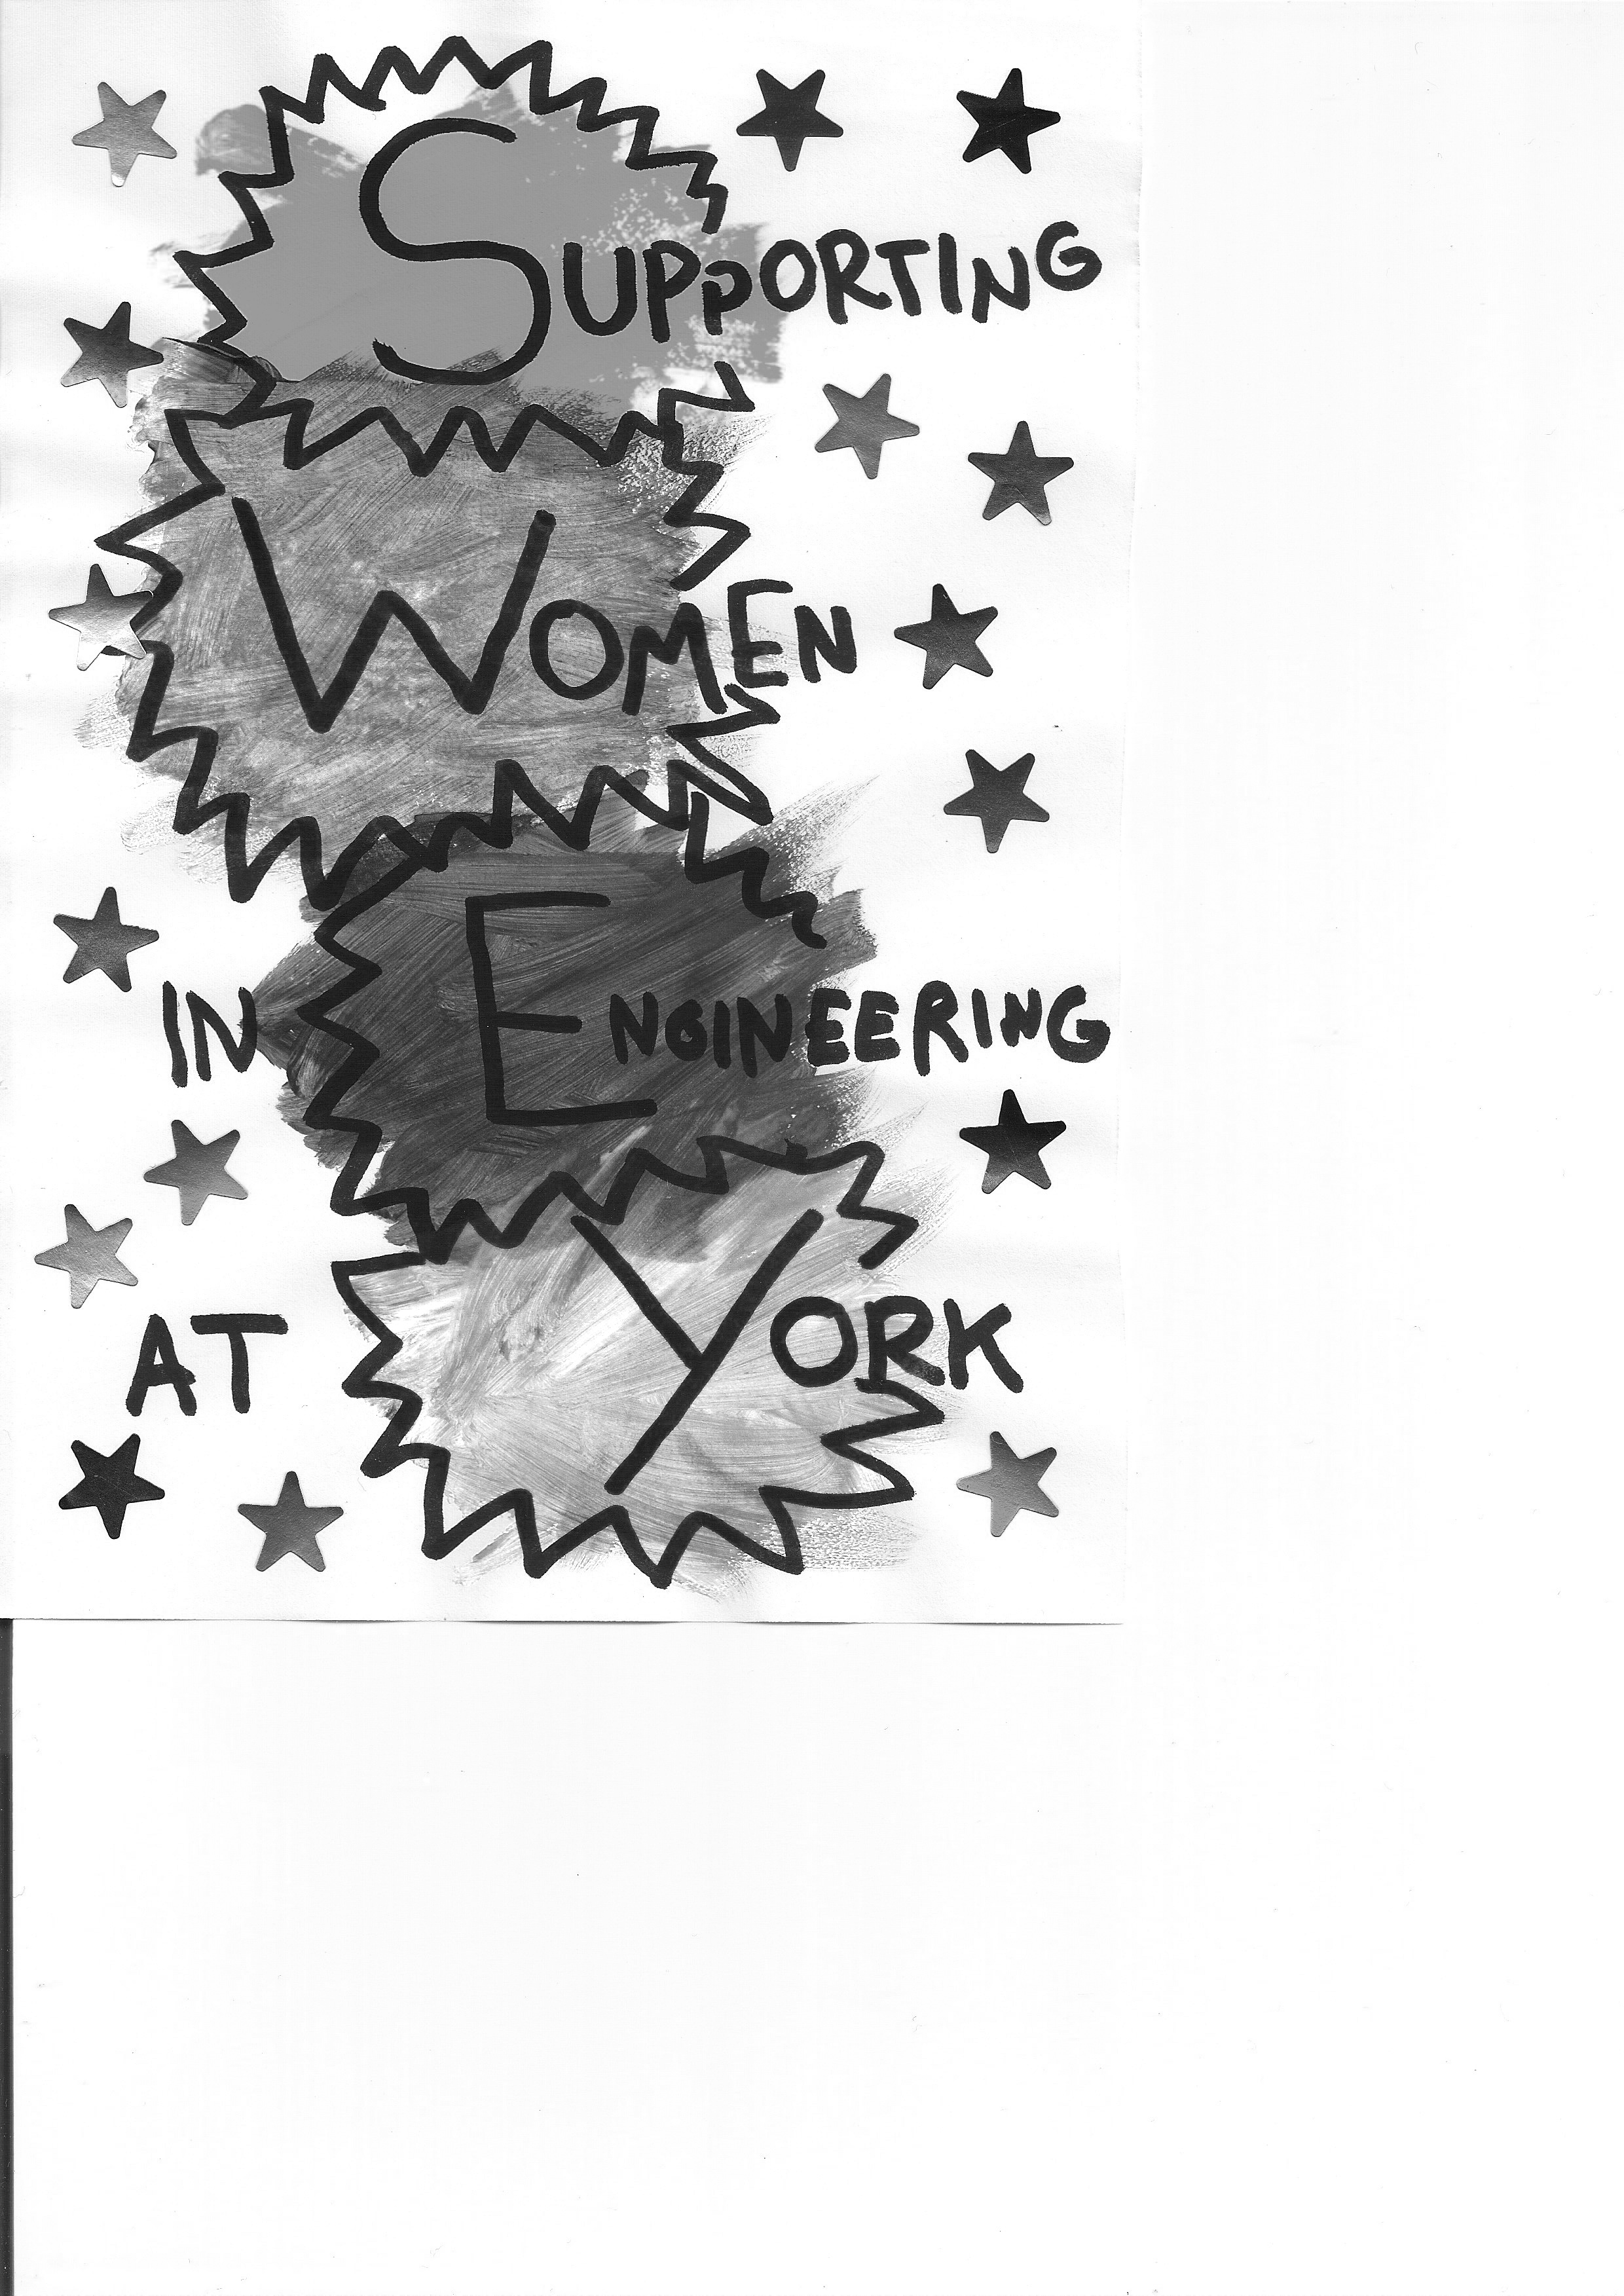 SUPPORTING
WOMEN
IN ENGINEERING
AT YORK